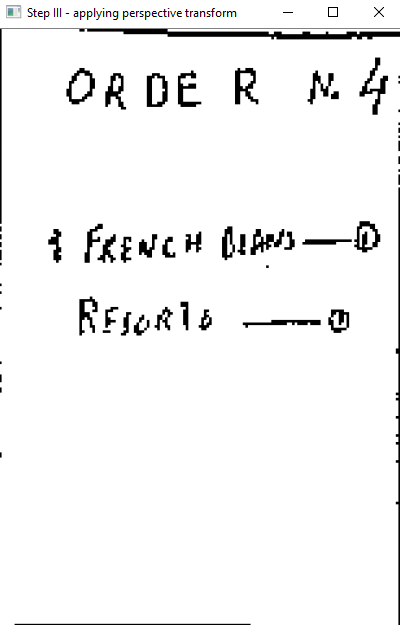 Step III - applying perspective transform
ORDER N. 4
FRENCH BEANS — 1
RESORTS — 1